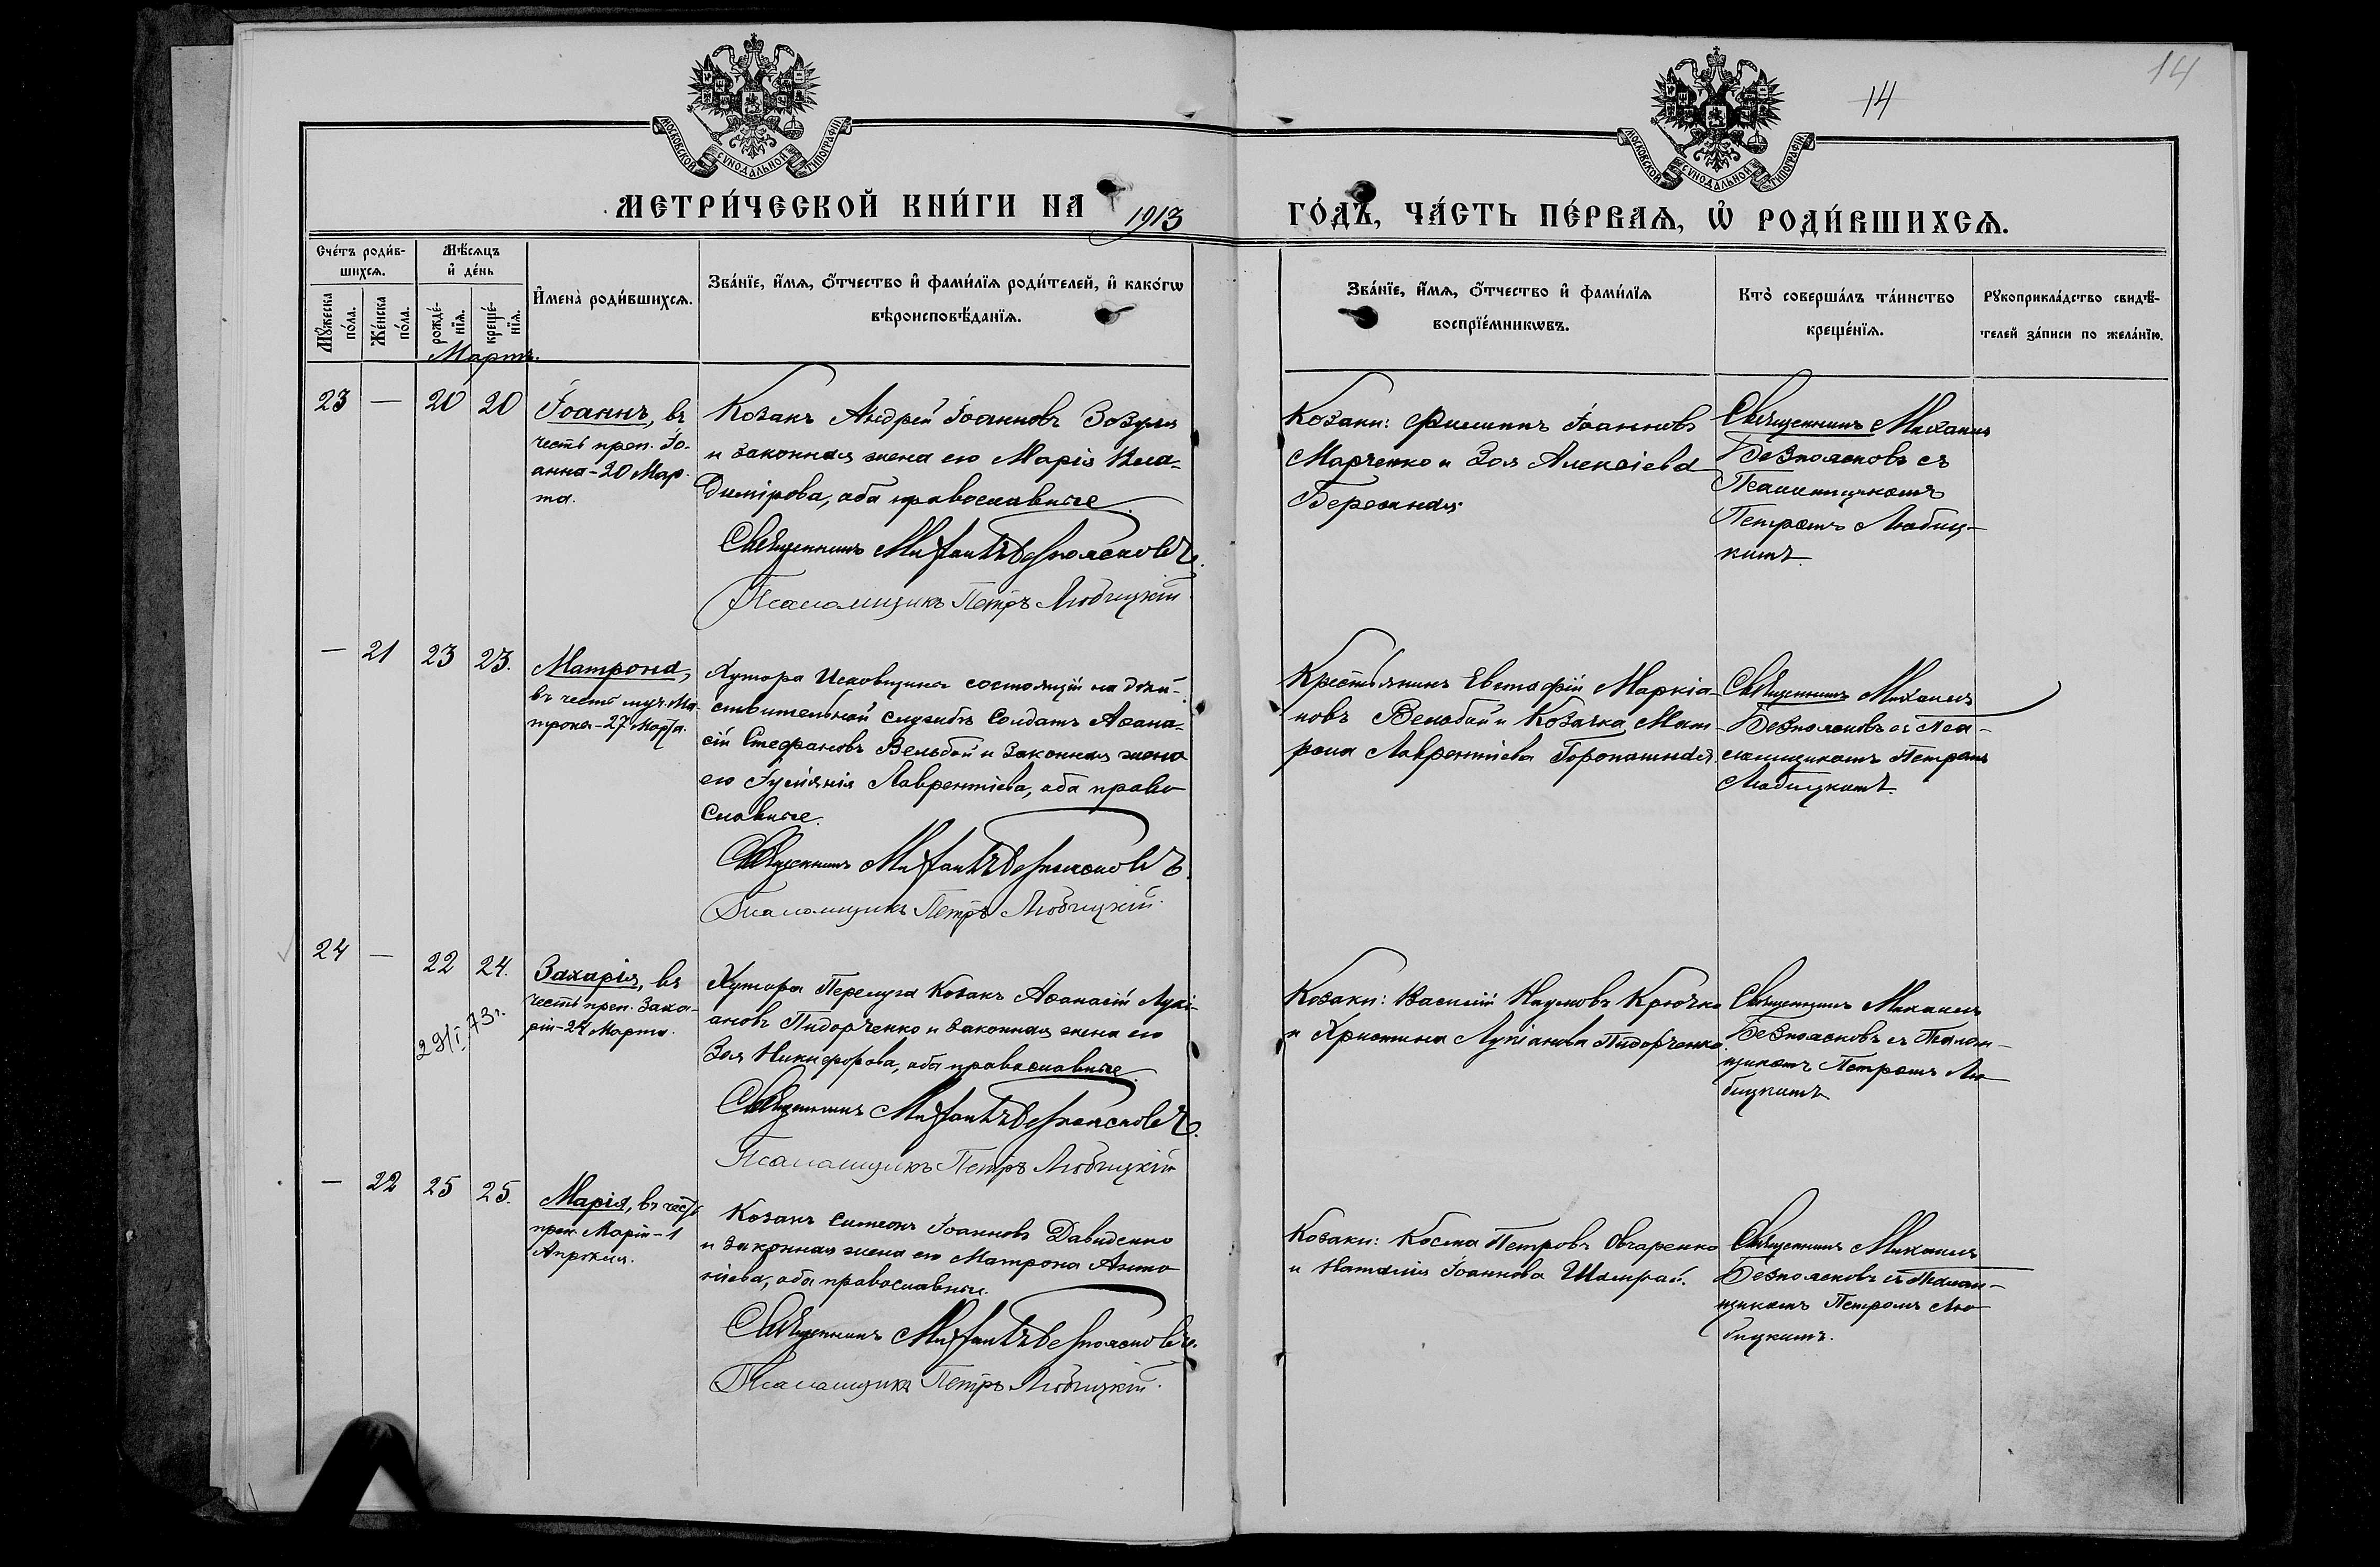 14
14
МОСКОВСКОЙ СѴНОДАЛЬНОЙ ТИПОГРАФІИ
МОСКОВСКОЙ СѴНОДАЛЬНОЙ ТИПОГРАФІИ
МЕТРИ́ЧЕСКОЙ КНИ́ГИ НА 1913 ГО́ДЪ, ЧА́СТЬ ПЕ́РВАѦ, Ѡ҆ РОДИ́ВШИХСѦ.
Сче́тъ роди́в-
шихсѧ.
Мꙋ́жеска
по́ла.
Же́нска
по́ла.
Мѣ́сѧцъ
и҆ де́нь
рожде́-
нїѧ.
креще́-
нїѧ.
И҆мена̀ роди́вшихсѧ.
Зва́нїе, и҆́мѧ, ѻ҆́тчество и҆ фами́лїѧ роди́телей, и҆ како́гѡ
вѣроисповѣ́данїѧ.
Зва́нїе, и҆́мѧ, ѻ҆́тчество и҆ фами́лїѧ
воспрїе́мникѡвъ.
Кто̀ соверша́лъ та́инство
креще́нїѧ.
Рꙋкоприкла́дство свидѣ́-
телей за́писи по жела́нїю.
Мартъ.
23 — 20 20
Іоаннъ, въ
честь преп. Іо-
анна-20 Мар-
та.
Козакъ Андрей Іоанновъ Зозуля
и законная жена его Марія Вла-
димірова, оба православные.
Священникъ Михаилъ Безпоясковъ.
Псаломщикъ Петръ Любицкій
Козаки: Филиппъ Іоанновъ
Марченко и Зоя Алексіева
Бережная
Священникъ Михаилъ
Безпоясковъ съ
Псаломщикомъ
Петромъ Любиц-
кимъ.
— 21 23 23.
Матрона,
въ честь муч. Ма-
троны-27 Марта.
Хутора Исковщина состоящій на дѣй-
ствительной службѣ Солдатъ Аѳана-
сій Стефановъ Вельбой и законная жена
его Лаврентіева, оба право-
славные.
Священникъ Михаилъ Безпоясковъ.
Псаломщикъ Петръ Любицкій.
Крестьянинъ Евстафій Маркіа-
новъ Вельбой и Козачка Мат-
рона Лаврентіева Горопашная.
Священникъ Михаилъ
Безпоясковъ съ Пса-
ломщикомъ Петромъ
Любицкимъ.
24 — 22 24.
29/I 73г.
Захарія, въ
честь преп. Заха-
рія-24 Марта.
Хутора Козакъ Аѳанасій Лукі-
ановъ Пидорченко и законная жена его
Зоя Никифорова, оба православные.
Священникъ Михаилъ Безпоясковъ.
Псаломщикъ Петръ Любицкій
Козаки: Василій Наумовъ Крючко
и Христина Лукіанова Пидорченко.
Священникъ Михаилъ
Безпоясковъ съ Псалом-
щикомъ Петромъ Лю-
бицкимъ
— 22 25 25.
Марія, въ честь
преп. Маріи-1
Апрѣля.
Козакъ Симеонъ Іоанновъ Давиденко
и законная жена его Матрона Анто-
ніева, оба православные.
Священникъ Михаилъ Безпоясковъ.
Псаломщикъ Петръ Любицкій.
Козаки: Косма Петровъ Овчаренко
и Наталія Іоаннова Шамрай.
Священникъ Михаилъ
Безпоясковъ съ Псалом-
щикомъ Петромъ Лю-
бицкимъ.